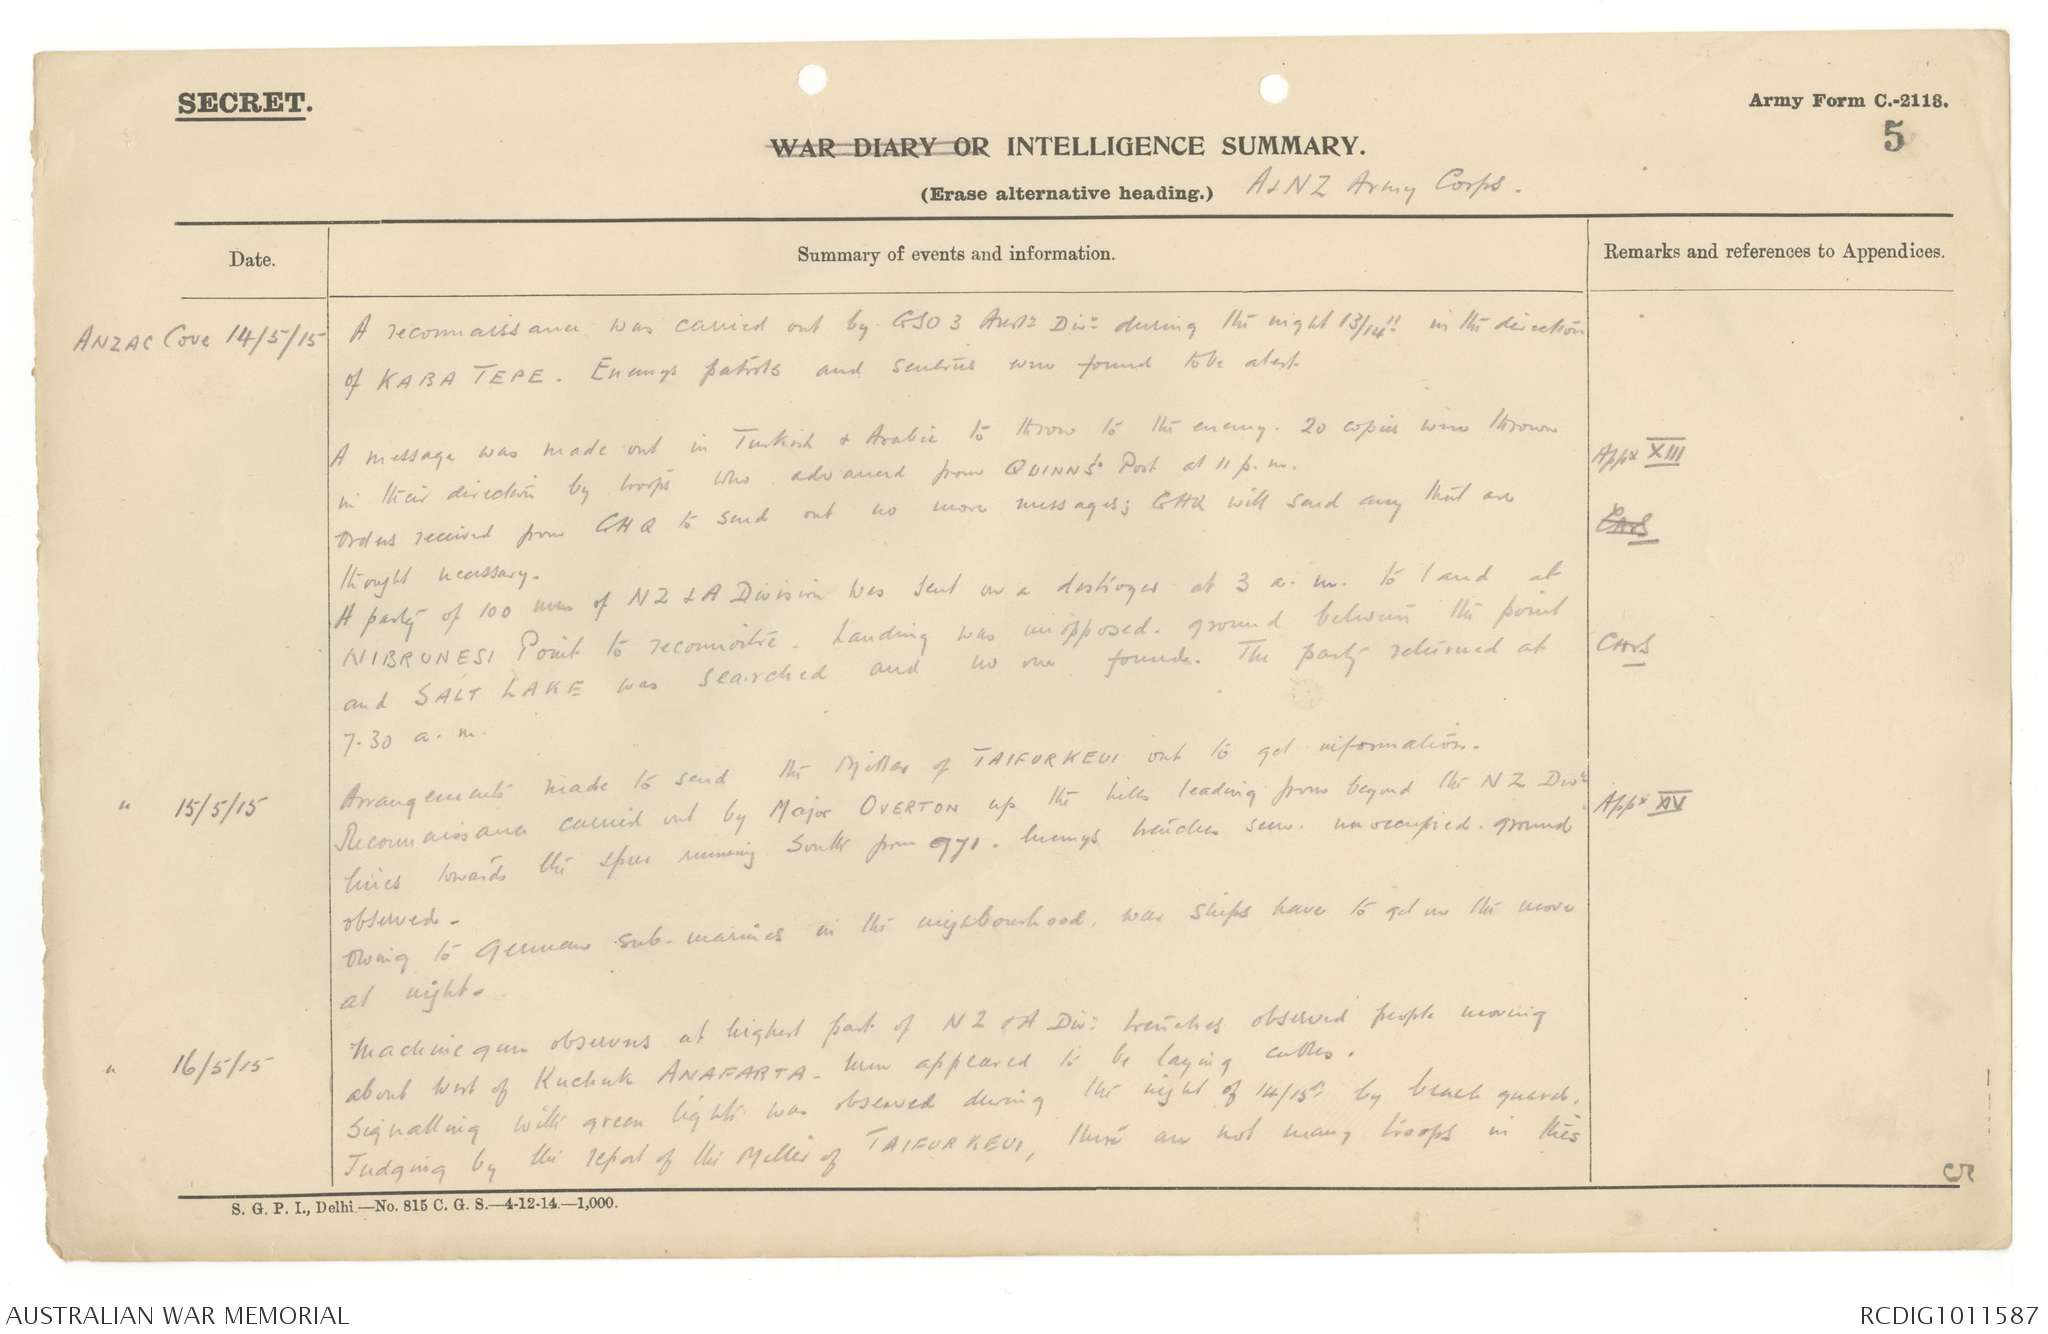 SECRET.
Army Form C.-2118.
5
WAR DIARY OR INTELLIGENCE SUMMARY.
(Erase alternative heading.) A & NZ Army Corps.
Date.
Summary of events and information.
Remarks and references to Appendices.
ANZAC Cove 14/5/15
A reconnaissance was carried out by GSO 3 Aust. Divn during the night 13/14th in the direction
of KABA TEPE. Enemys patrols and sentries were found to be alert.
A message was made out in Turkish & Arabic to throw to the enemy. 20 copies were thrown
Appx XIII
in their direction by troops who advanced from QUINN'S Post at 11 p.m.
Orders received from GHQ to send out no more messages; GHQ will send any that are
thought necessary.
A party of 100 men of NZ & A Division was sent on a destroyer at 3 a.m. to land at
NIBRUNESI Point to reconnoitre. Landing was unopposed. ground between the point
and SALT LAKE was searched and no one found. The party returned at
7.30 a.m.
" 15/5/15
Arrangements made to send the Miller of TAIFURKEUI out to get information.
Reconnaissance carried out by Major OVERTON up the hills leading from beyond the NZ Divn
Appx XIV
lines towards the spur running South from 971. Enemys trenches seen. unoccupied. ground
observed.
Owing to German sub-marines in the neighbourhood, war ships have to get on the move
at night.
" 16/5/15
Machine gun observers at highest part of NZ & A Divn trenches observed people moving
about West of Kuchuk ANAFARTA - men appeared to be laying cables.
Signalling with green lights was observed during the night of 14/15th by beach guard.
Judging by the report of the Miller of TAIFURKEUI, there are not many troops in this
5
S. G. P. I., Delhi—No. 815 C. G. S.—4-12-14.—1,000.
AUSTRALIAN WAR MEMORIAL
RCDIG1011587